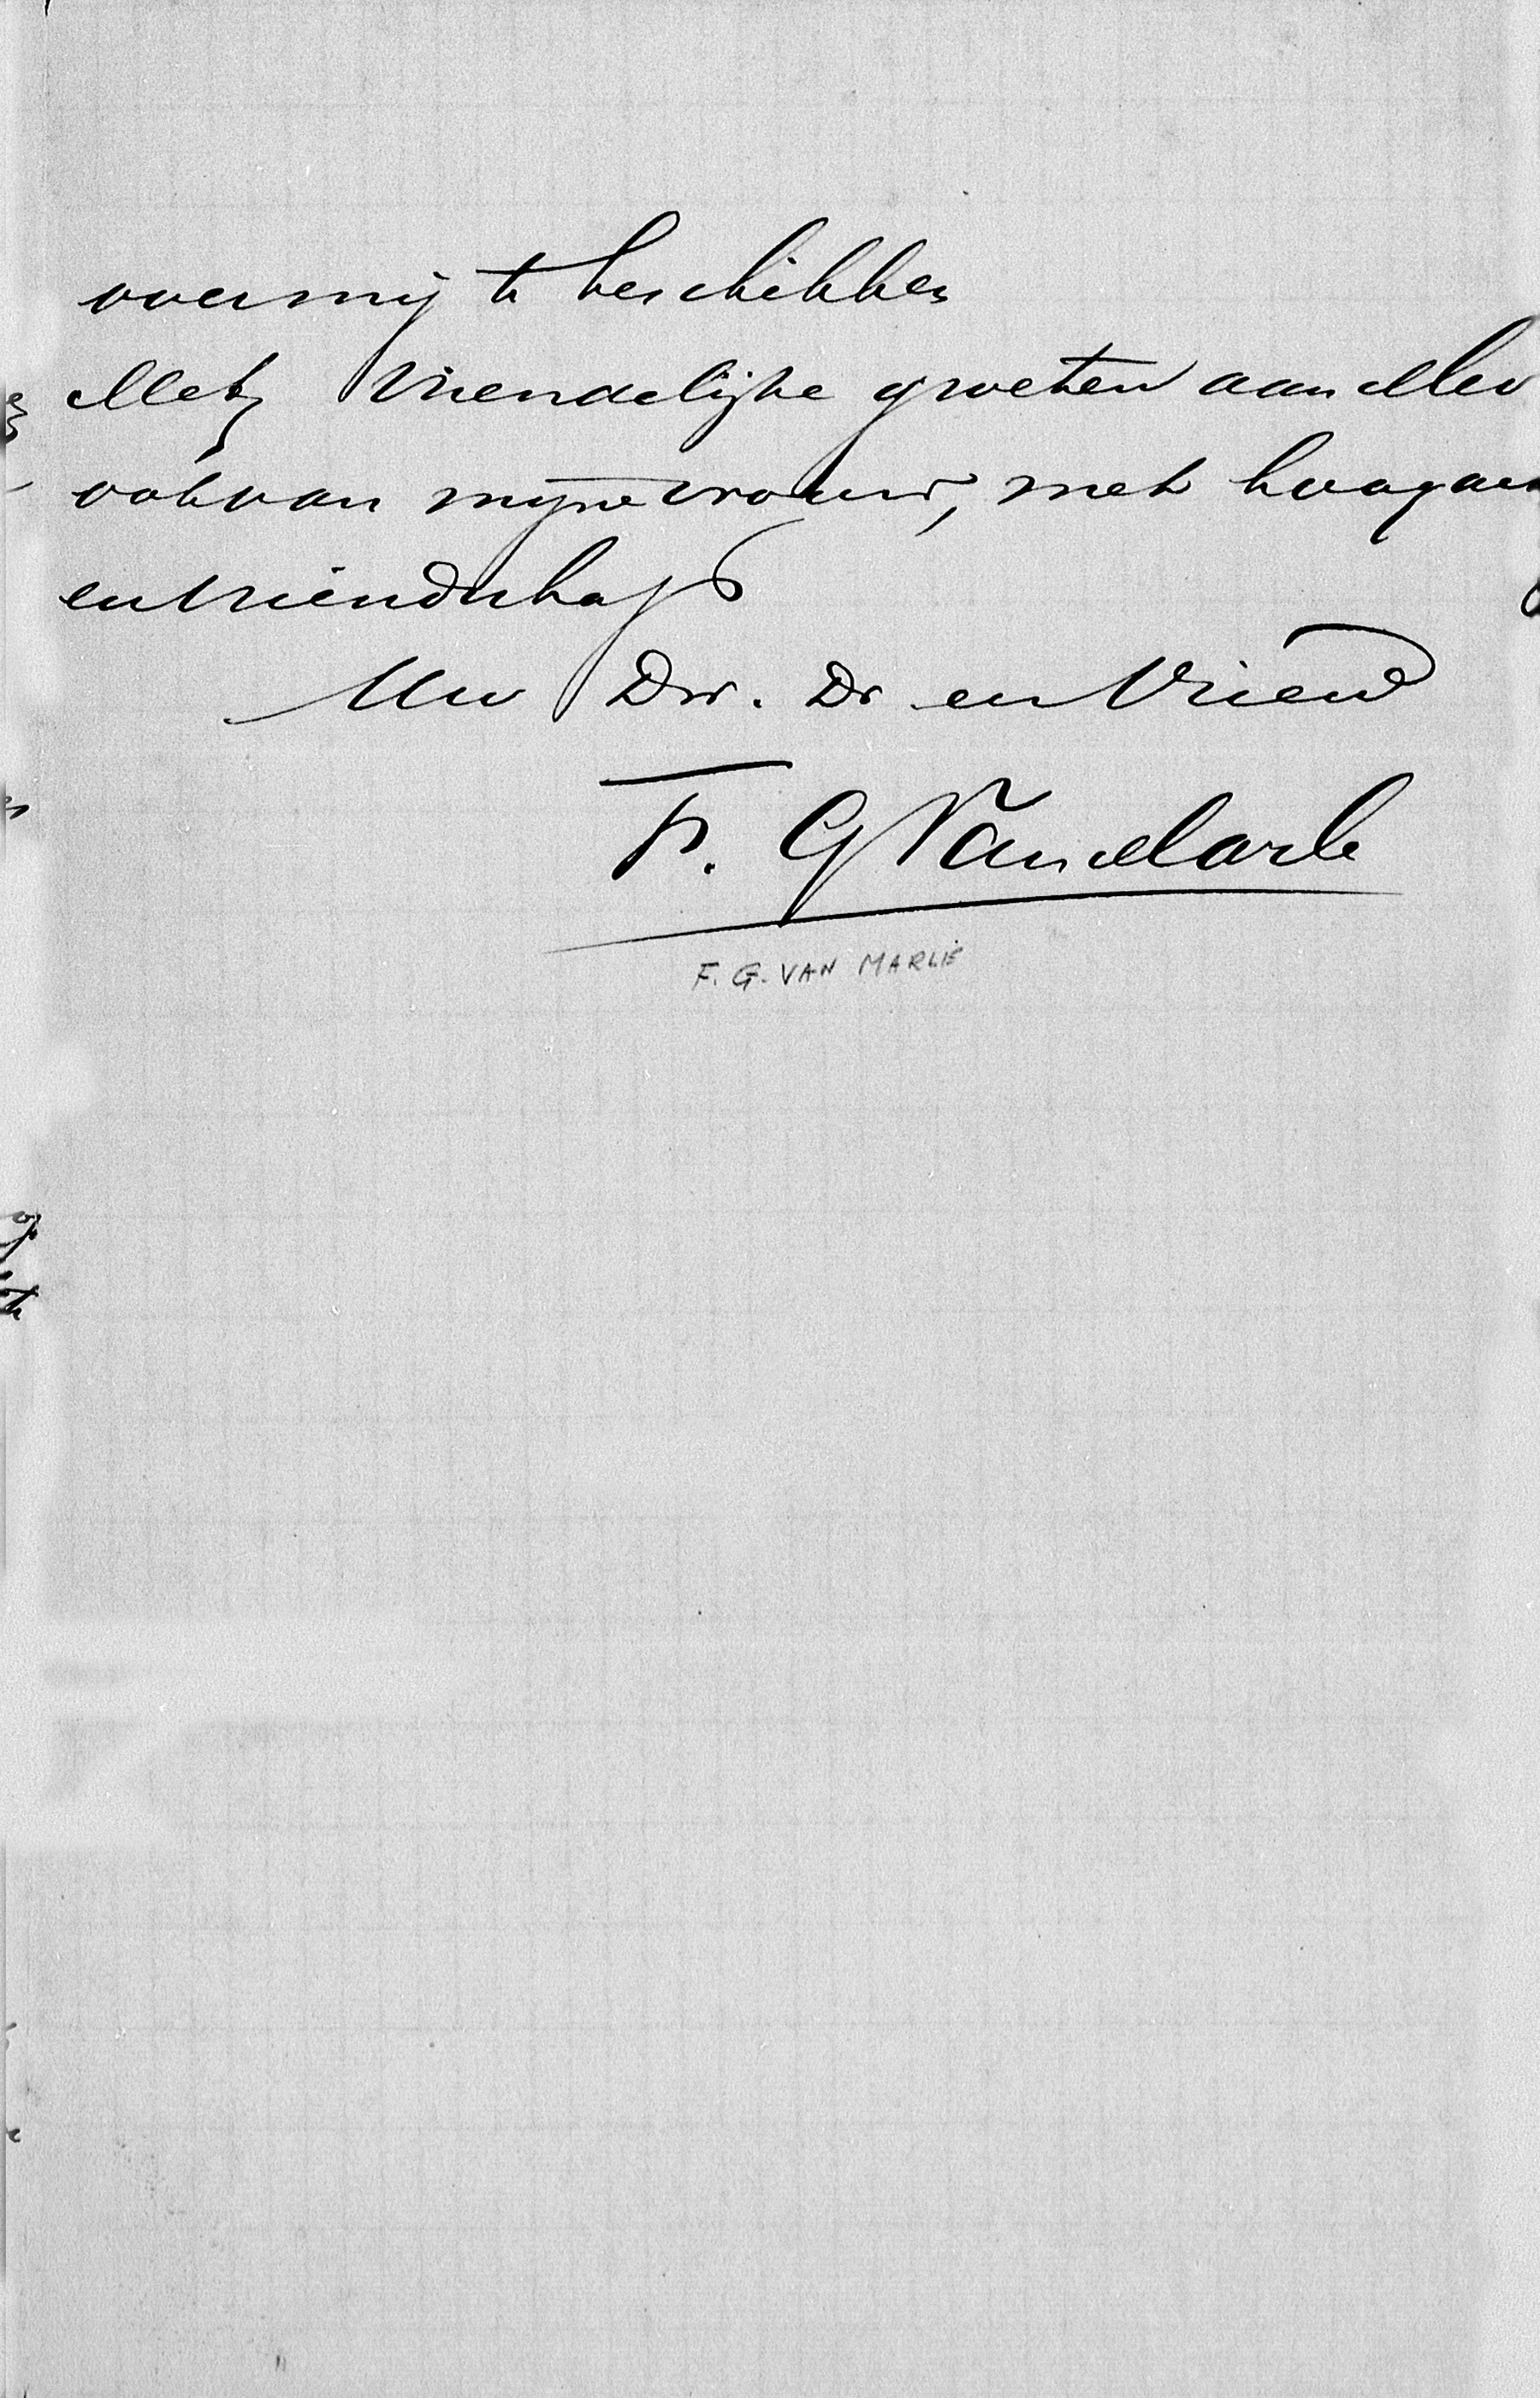 over mij te beschikken
Met vriendelijke groeten aan Mev
ook van mijne vrouw, met hoogac
en vriendschap
Uw Dw. Dr en Vriend
F. G Van Marle
F. G. VAN MARLE